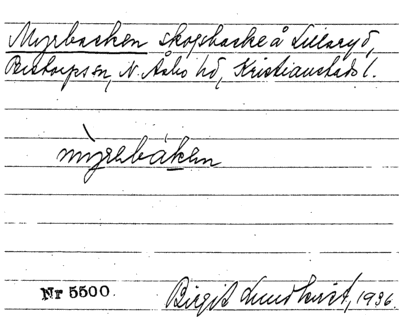 Myrbacken skogsbacke å Lillaryd,
Perstorps sn, N. Åsbo hd, Kristianstads l.
mỳrebáken
Nr 5500. Birgit Lundkvist, 1936.